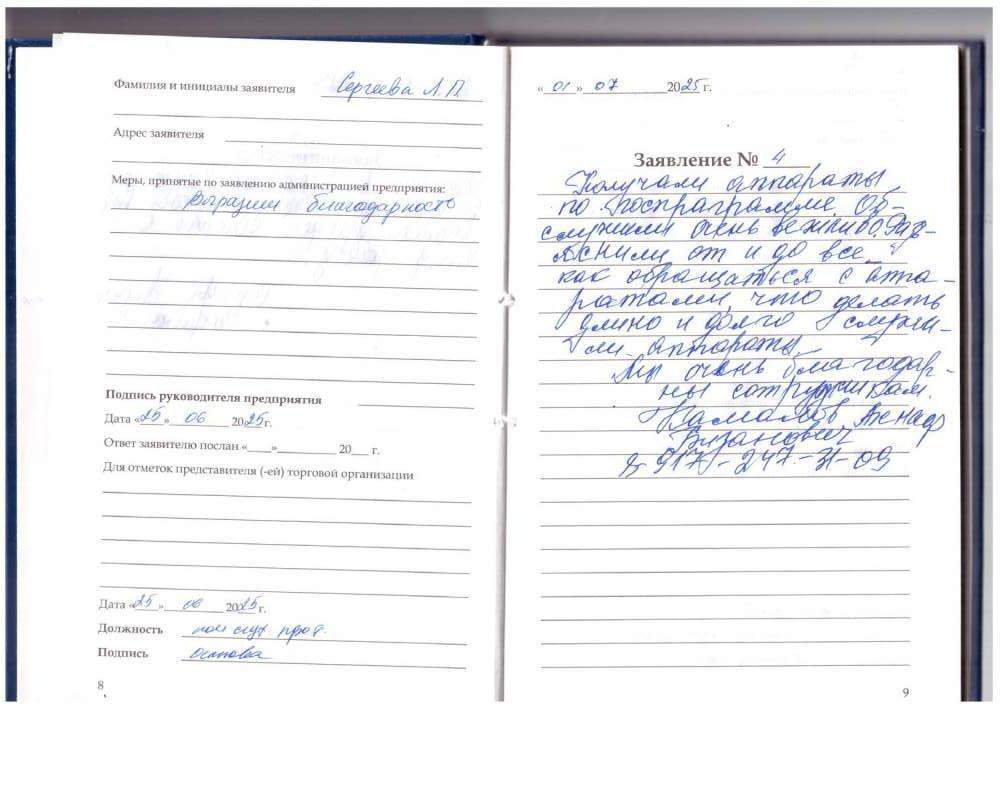 Фамилия и инициалы заявителя Сергеева Л.П.
Адрес заявителя
Меры, принятые по заявлению администрацией предприятия:
Выразили благодарность
Подпись руководителя предприятия
Дата «25» 06 2025г.
Ответ заявителю послан «____»__________ 20___ г.
Для отметок представителя (-ей) торговой организации
Дата «25» 06 2025г.
Должность пом слух прот.
Подпись
8
«01» 07 2025 г.
Заявление № 4
Получали аппараты
по госпраграмме. Об-
служили очень вежливо. Раз-
яснили от и до все
как обращаться с аппа-
ратами, что делать
длино и долго служи-
ли аппараты
Мы очень благодар-
ны сотрудникам.
Камалов
8-917-247-31-09
9